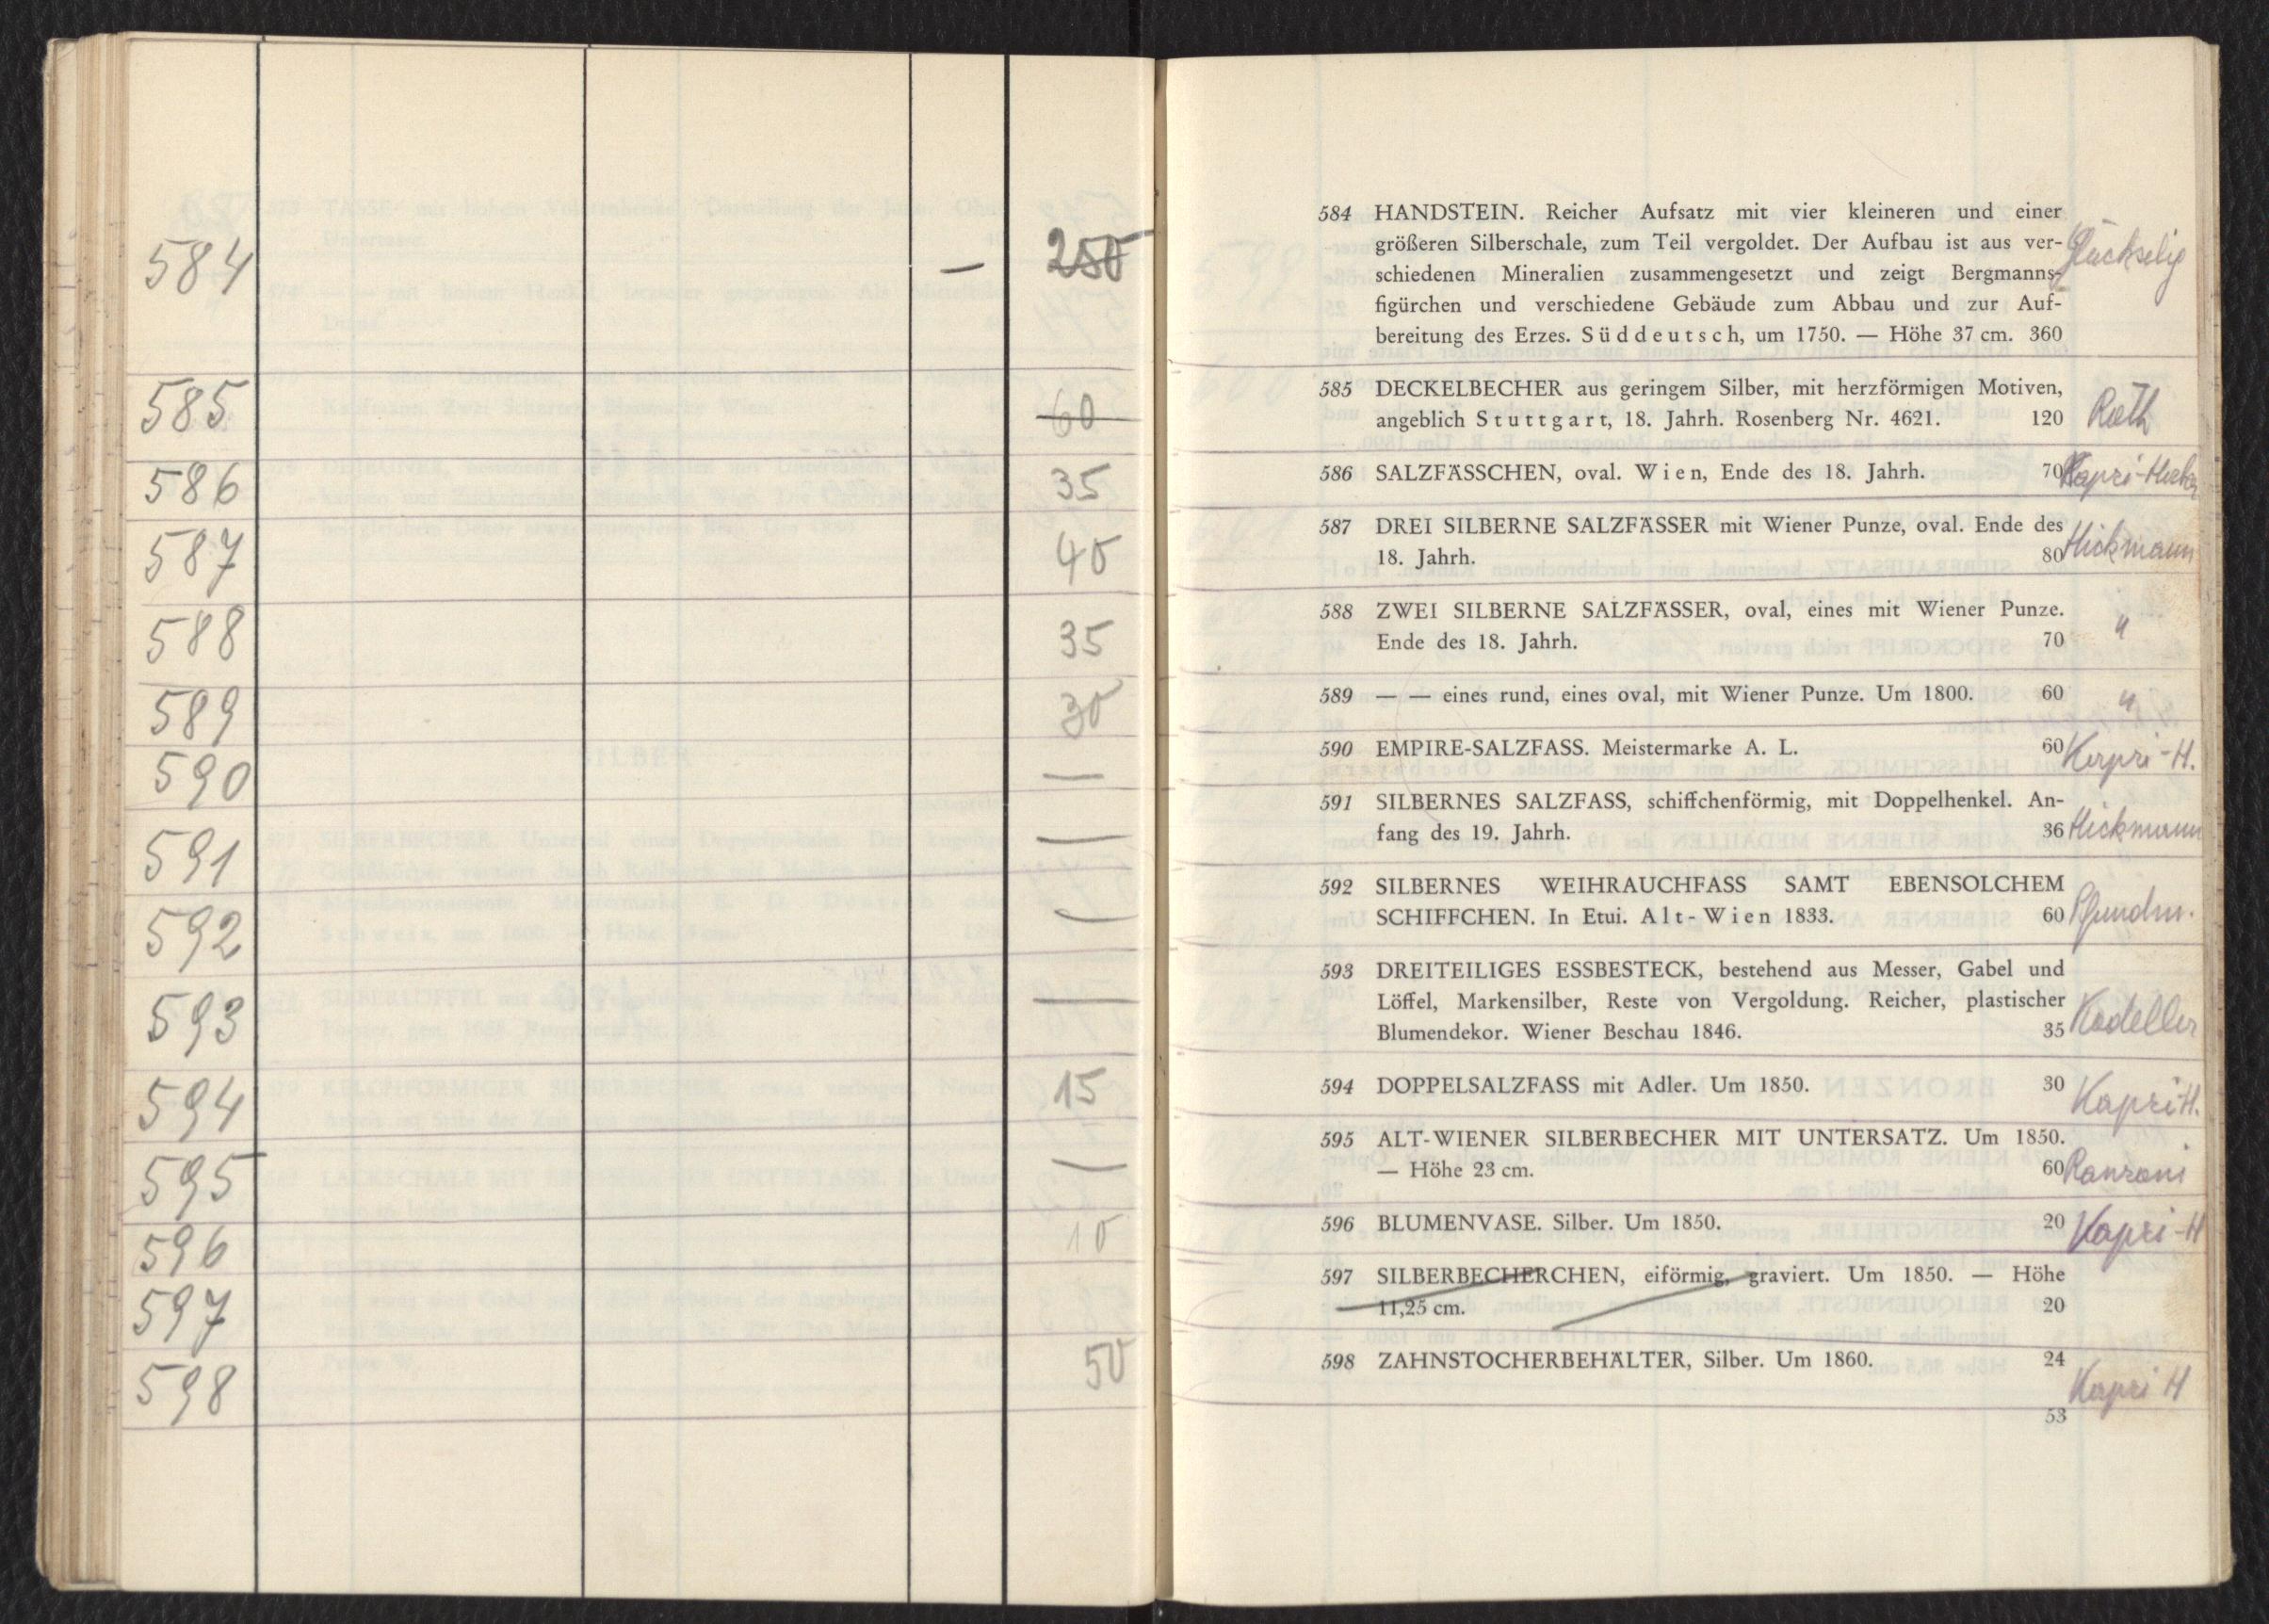 584
— 250
585
60
586
35
587
40
588
35
589
30
590
—
591
—
592
—
593
—
594
15
595
—
596
10
597
598
50
584 HANDSTEIN. Reicher Aufsatz mit vier kleineren und einer
größeren Silberschale, zum Teil vergoldet. Der Aufbau ist aus ver-
Glückselig
schiedenen Mineralien zusammengesetzt und zeigt Bergmanns-
figürchen und verschiedene Gebäude zum Abbau und zur Auf-
bereitung des Erzes. Süddeutsch, um 1750. — Höhe 37 cm. 360
585 DECKELBECHER aus geringem Silber, mit herzförmigen Motiven,
angeblich Stuttgart, 18. Jahrh. Rosenberg Nr. 4621. 120 Roth
586 SALZFÄSSCHEN, oval. Wien, Ende des 18. Jahrh. 70 Kapri-
587 DREI SILBERNE SALZFÄSSER mit Wiener Punze, oval. Ende des
18. Jahrh. 80 Hickmann
588 ZWEI SILBERNE SALZFÄSSER, oval, eines mit Wiener Punze.
Ende des 18. Jahrh. 70 "
589 — — eines rund, eines oval, mit Wiener Punze. Um 1800. 60 "
590 EMPIRE-SALZFASS. Meistermarke A. L. 60 Kapri-H.
591 SILBERNES SALZFASS, schiffchenförmig, mit Doppelhenkel. An-
fang des 19. Jahrh. 36 Hickmann
592 SILBERNES WEIHRAUCHFASS SAMT EBENSOLCHEM
SCHIFFCHEN. In Etui. Alt-Wien 1833. 60
593 DREITEILIGES ESSBESTECK, bestehend aus Messer, Gabel und
Löffel, Markensilber, Reste von Vergoldung. Reicher, plastischer
Blumendekor. Wiener Beschau 1846. 35 Kodeller
594 DOPPELSALZFASS mit Adler. Um 1850. 30 Kapri H.
595 ALT-WIENER SILBERBECHER MIT UNTERSATZ. Um 1850.
— Höhe 23 cm. 60 Ranzoni
596 BLUMENVASE. Silber. Um 1850. 20 Kapri-H
597 SILBERBECHERCHEN, eiförmig, graviert. Um 1850. — Höhe
11,25 cm. 20
598 ZAHNSTOCHERBEHÄLTER, Silber. Um 1860. 24
Kapri H
53